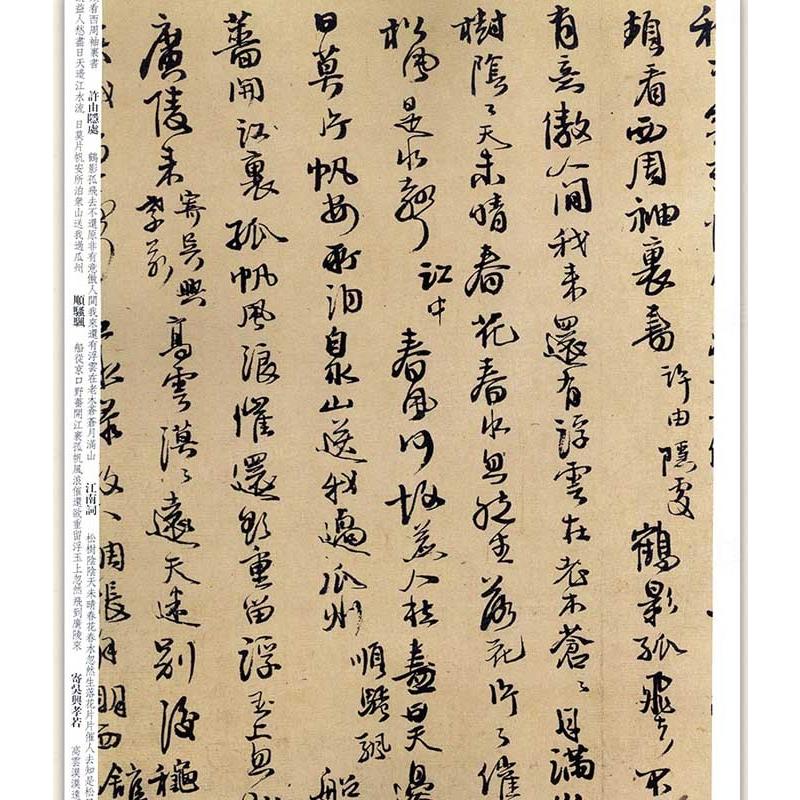 看西周袖裏書 許由隱處 鶴影孤飛去不
有意傲人間我來還有浮雲在老木蒼〻月滿
樹陰〻天未晴春花春水忽然生落花片〻催
松風是水聲 江中 春風何故惹人愁盡日天邊
日莫片帆安所泊衆山送我過瓜州 順騷颿 船
蕃開江裏孤帆風浪催還欲重留浮玉上忽然
廣陵來 寄吳興孝若 高雲漠〻遠天迷別後種
看西周袖裏書 許由隱處 鶴影孤飛去不還原非有意傲人間我來還有浮雲在老木蒼蒼月滿山 江南詞 松樹陰陰天未晴春花春水忽然生落花片片催人去知是松
益人愁盡日天邊江水流 日莫片帆安所泊衆山送我過瓜州 順騷颿 船從京口野蕃開江裏孤帆風浪催還欲重留浮玉上忽然飛到廣陵來 寄吳興孝若 高雲漠漠遠